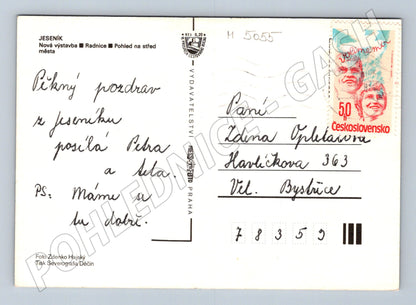 JESENÍK
Nová výstavba ■ Radnice ■ Pohled na střed
města
M 5655
Pěkný pozdrav
z Jeseníku
posílá Petra
a teta.
PS: Máme se
tu dobře.
Foto Zdenko Hajský
Tisk Severografia Děčín
VYDAVATELSTVÍ
PRAHA
50
Československo
Paní
Zdena Opletalová
Havlíčkova 363
Vel. Bystřice
78353
POHLEDNICE - GASH